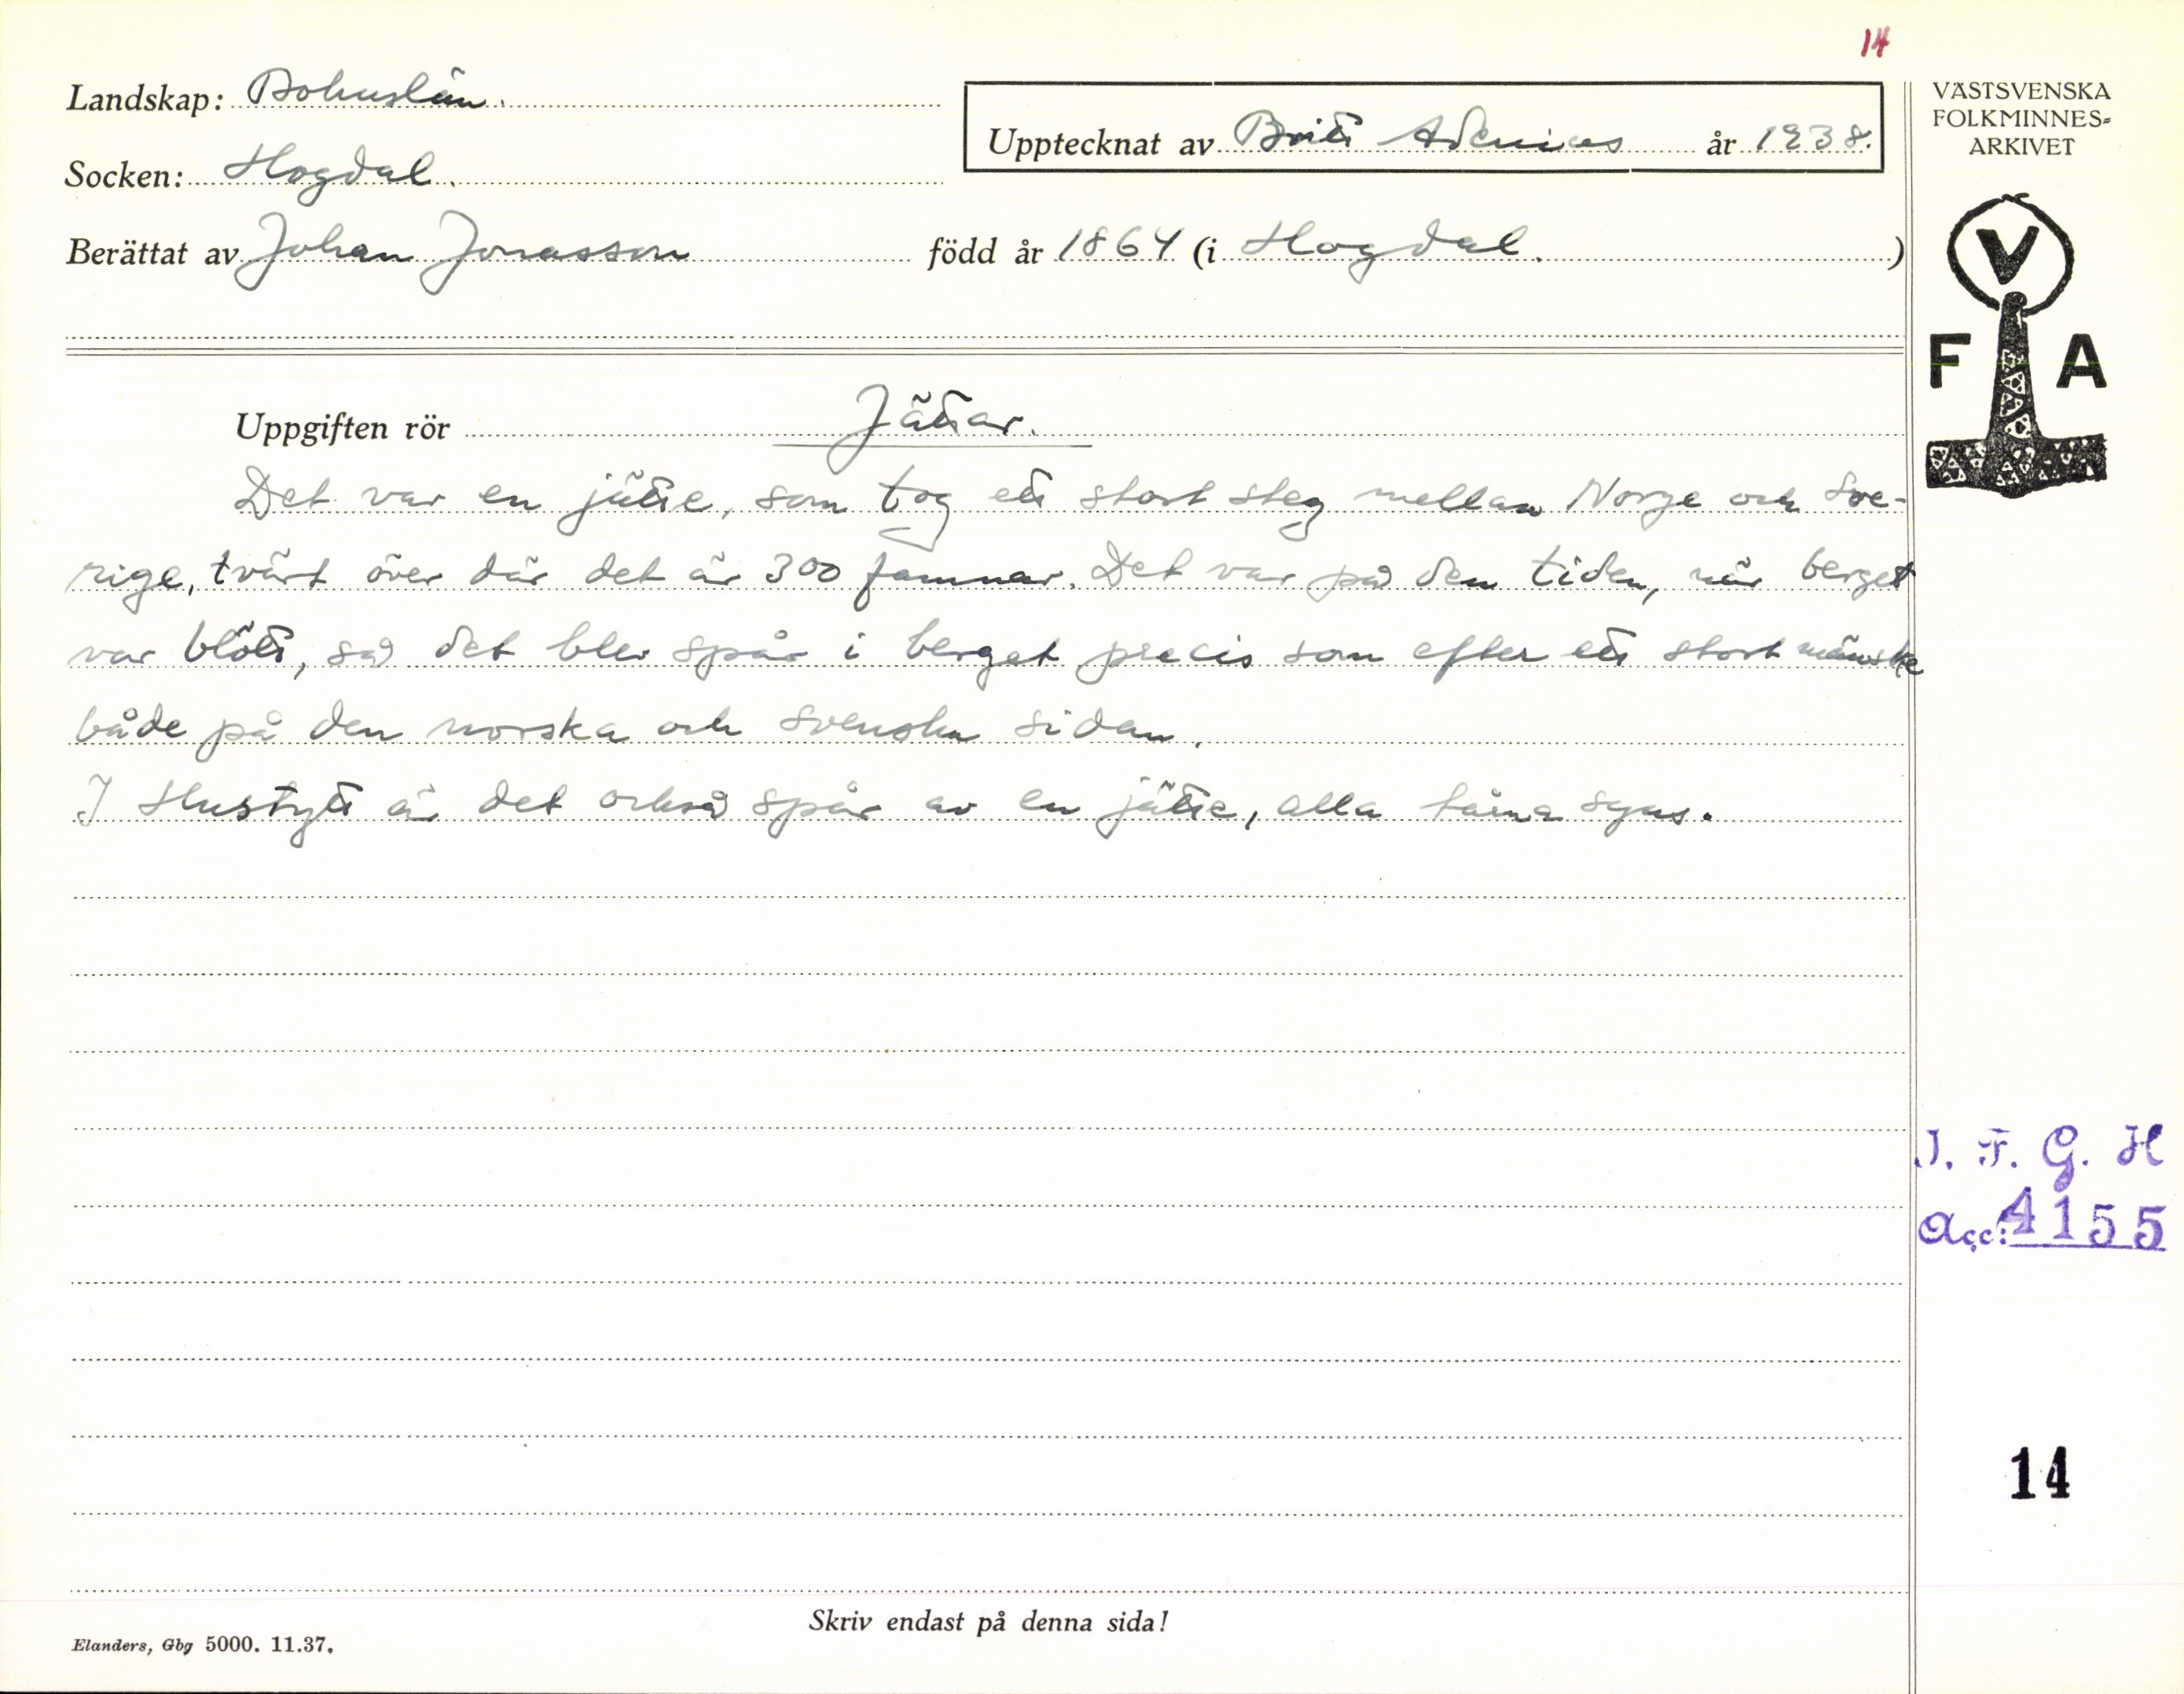 14
Landskap: Bohuslän.
Upptecknat av Britt Adenius år 1938.
VÄSTSVENSKA
FOLKMINNES-
ARKIVET
Socken: Hogdal.
Berättat av Johan Jonasson född år 1864 (i Hogdal. )
V
F A
Uppgiften rör Jättar.
Det var en jätte, som tog ett stort steg mellan Norge och Sve-
rige, tvärt över där det är 300 famnar. Det var på den tiden, när berget
var blött, så det blev spår i berget precis som efter ett stort mänske
både på den norska och svenska sidan.
I Hustyft är det också spår av en jätte, alla tårna synas.
J. F. G. H
Acc: 4155
14
Skriv endast på denna sida!
Elanders, Gbg 5000. 11.37.